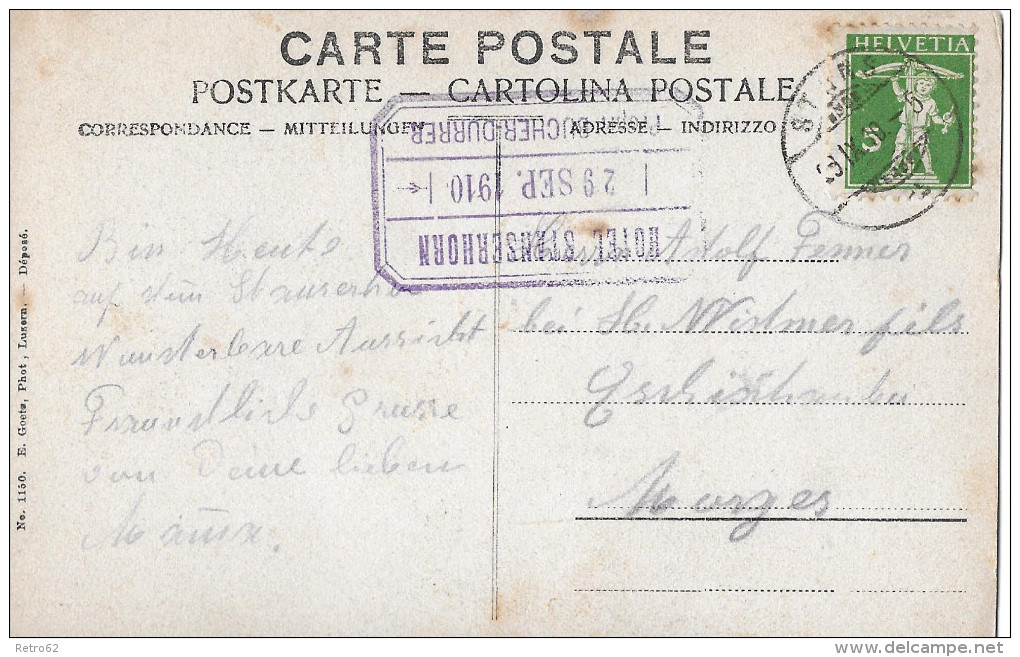 CARTE POSTALE
POSTKARTE — CARTOLINA POSTALE
CORRESPONDANCE — MITTEILUNGEN
ADRESSE — INDIRIZZO
HELVETIA
5
STANS
HOTEL STANSERHORN
29 SEP. 1910
BUCHER-DURRER
Bin Heute
auf dem Stanserhorn
Wunderbare Aussicht
Freundliche Grüsse
von Deine lieben
Mamma.
Adolf Fenner
bei H. Widmer fils
Morges
No. 1150. E. Goetz, Phot., Luzern. — Déposé.
Retro62
delcampe.net